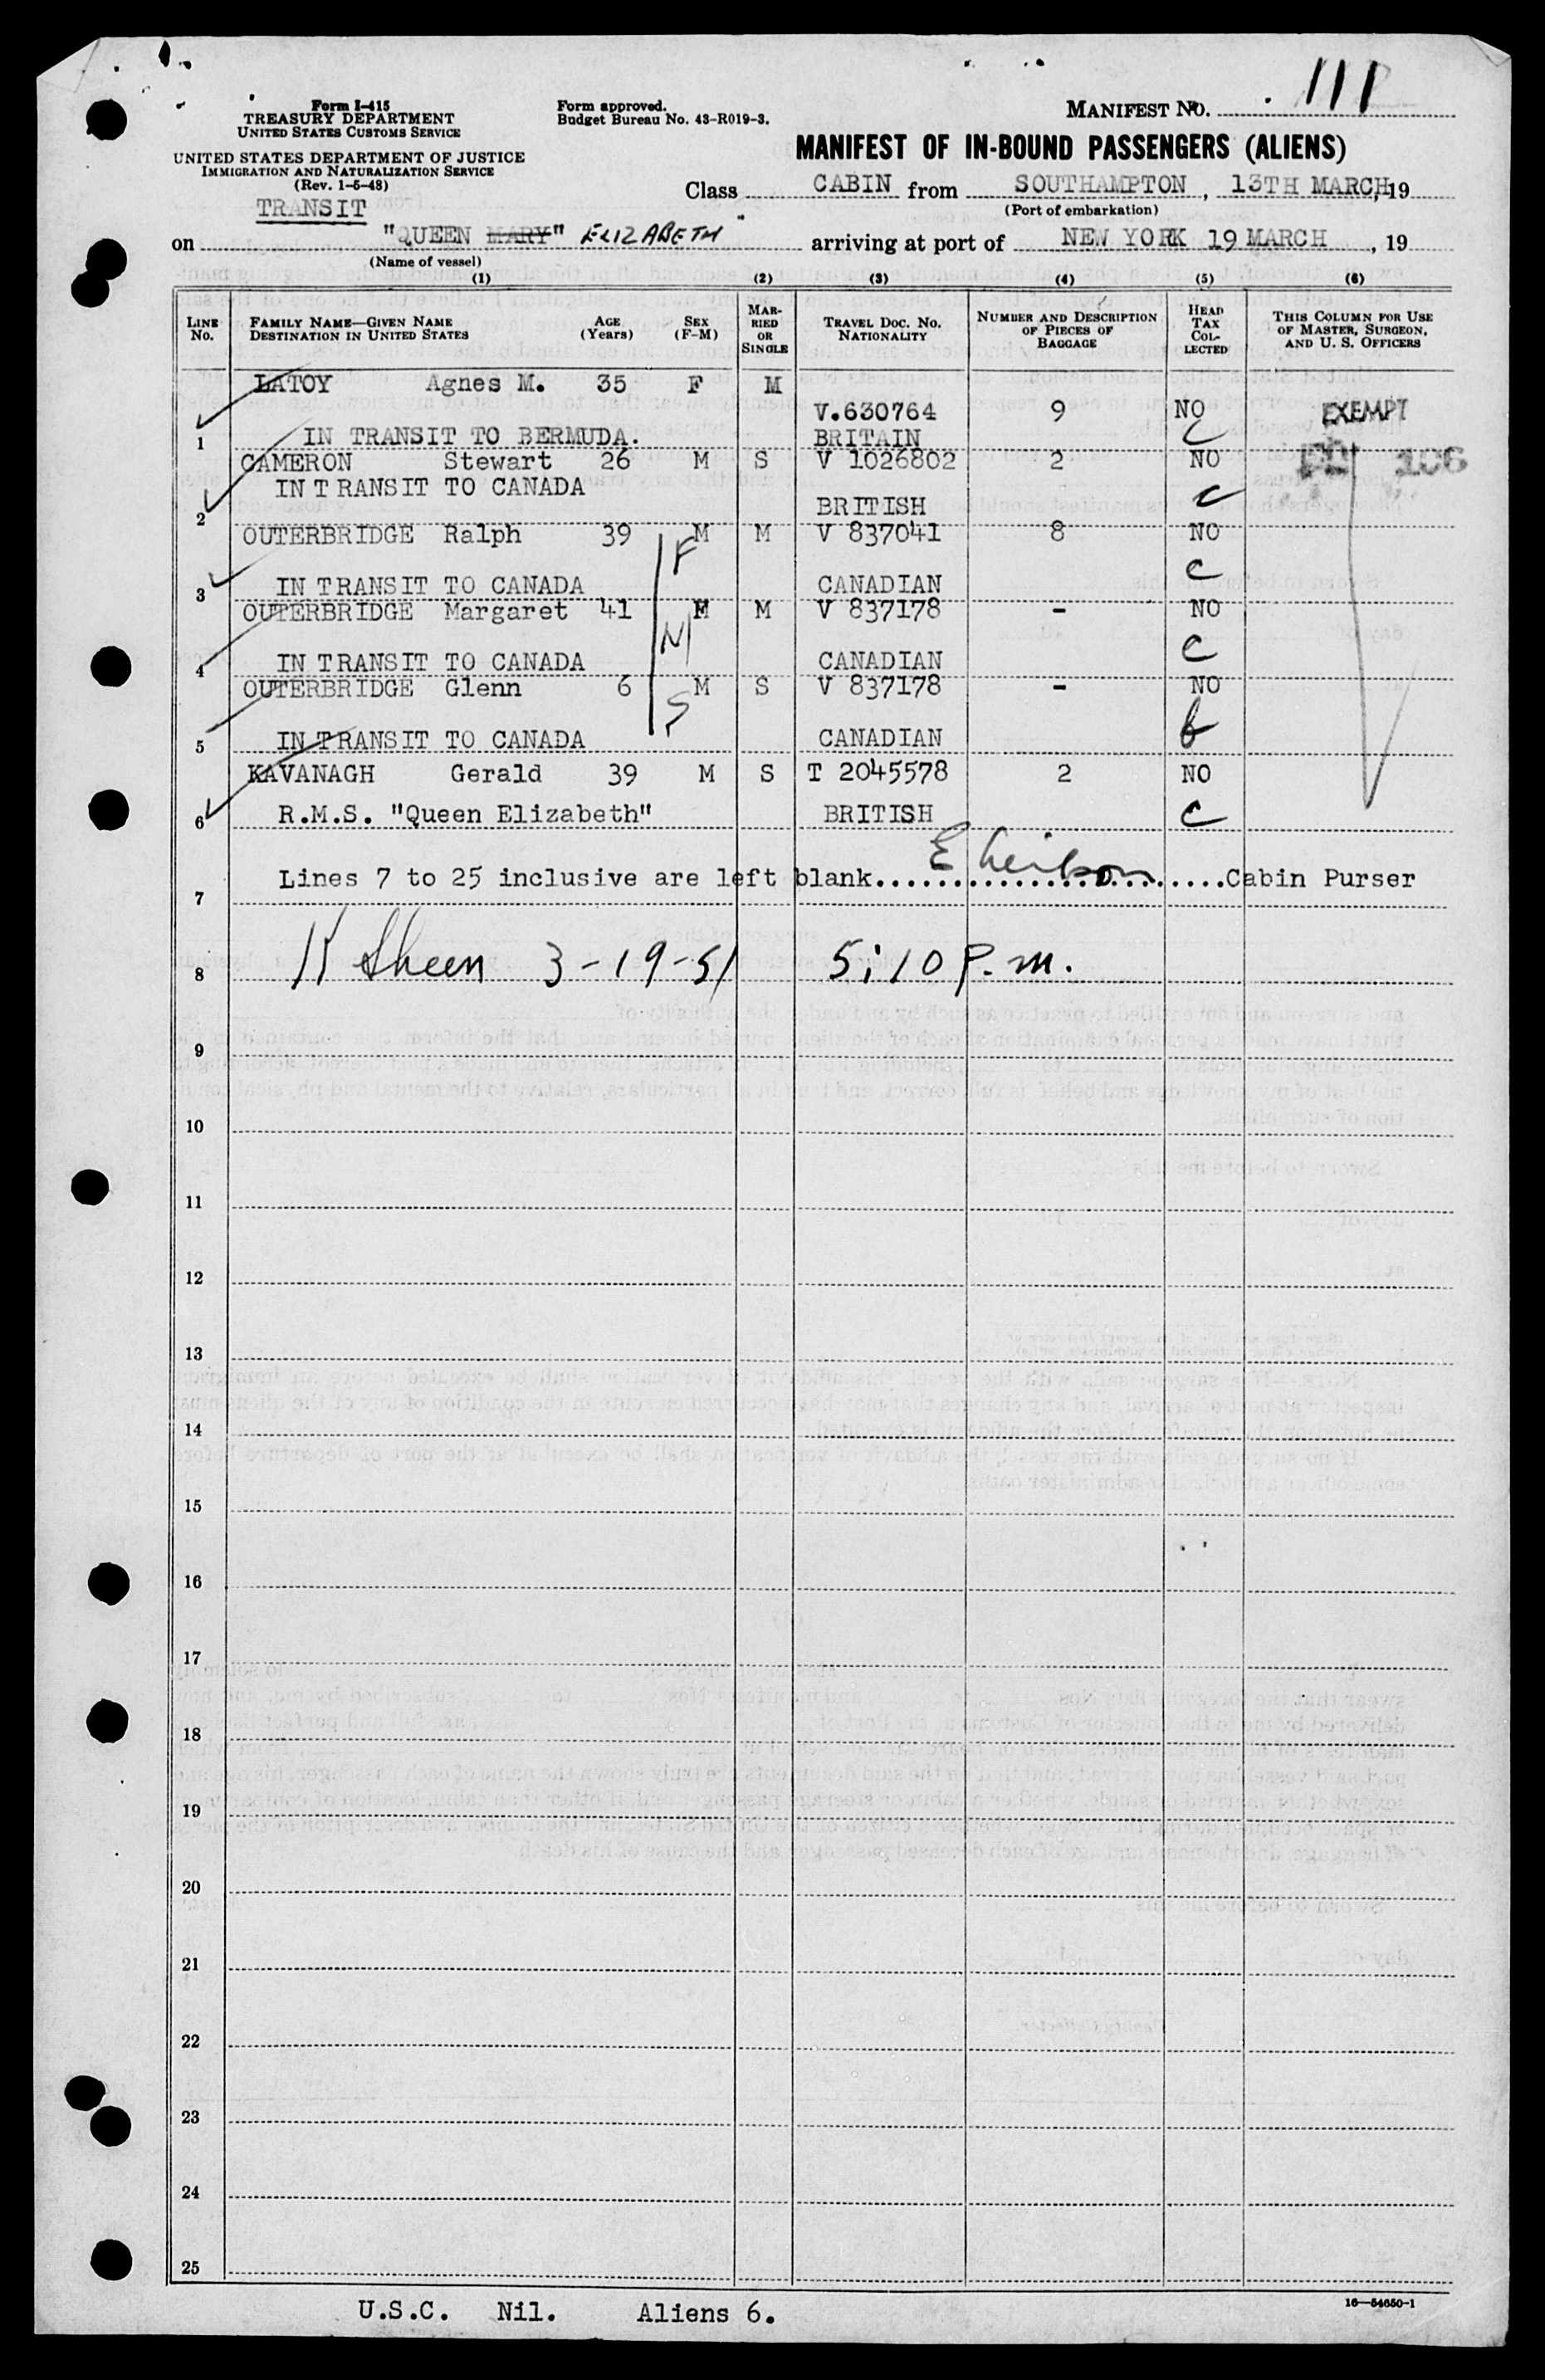 111
Form I-415
TREASURY DEPARTMENT
UNITED STATES CUSTOMS SERVICE
Form approved.
Budget Bureau No. 43-R019-3.
MANIFEST NO.
UNITED STATES DEPARTMENT OF JUSTICE
IMMIGRATION AND NATURALIZATION SERVICE
(Rev. 1-5-48)
MANIFEST OF IN-BOUND PASSENGERS (ALIENS)
TRANSIT
Class CABIN from SOUTHAMPTON, 13TH MARCH, 19
(Port of embarkation)
on "QUEEN MARY" ELIZABETH arriving at port of NEW YORK 19 MARCH, 19
(Name of vessel)
(1) (2) (3) (4) (5) (6)
LINE No. FAMILY NAME—GIVEN NAME DESTINATION IN UNITED STATES AGE (Years) SEX (F-M) MARRIED OR SINGLE TRAVEL DOC. NO. NATIONALITY NUMBER AND DESCRIPTION OF PIECES OF BAGGAGE HEAD TAX COLLECTED THIS COLUMN FOR USE OF MASTER, SURGEON, AND U. S. OFFICERS
LATOY Agnes M. 35 F M
V.630764 9 NO EXEMPT
1 IN TRANSIT TO BERMUDA. BRITAIN C
CAMERON Stewart 26 M S V 1026802 2 NO 106
IN TRANSIT TO CANADA
2 BRITISH C
OUTERBRIDGE Ralph 39 M M V 837041 8 NO
F
3 IN TRANSIT TO CANADA CANADIAN C
OUTERBRIDGE Margaret 41 F M V 837178 - NO
N
4 IN TRANSIT TO CANADA CANADIAN C
OUTERBRIDGE Glenn 6 M S V 837178 - NO
S
5 IN TRANSIT TO CANADA CANADIAN
KAVANAGH Gerald 39 M S T 2045578 2 NO
6 R.M.S. "Queen Elizabeth" BRITISH C
7 Lines 7 to 25 inclusive are left blank.......................Cabin Purser
8 K Sheen 3-19-51 5:10 P.m.
9
10
11
12
13
14
15
16
17
18
19
20
21
22
23
24
25
U.S.C. Nil. Aliens 6.
16—54650-1